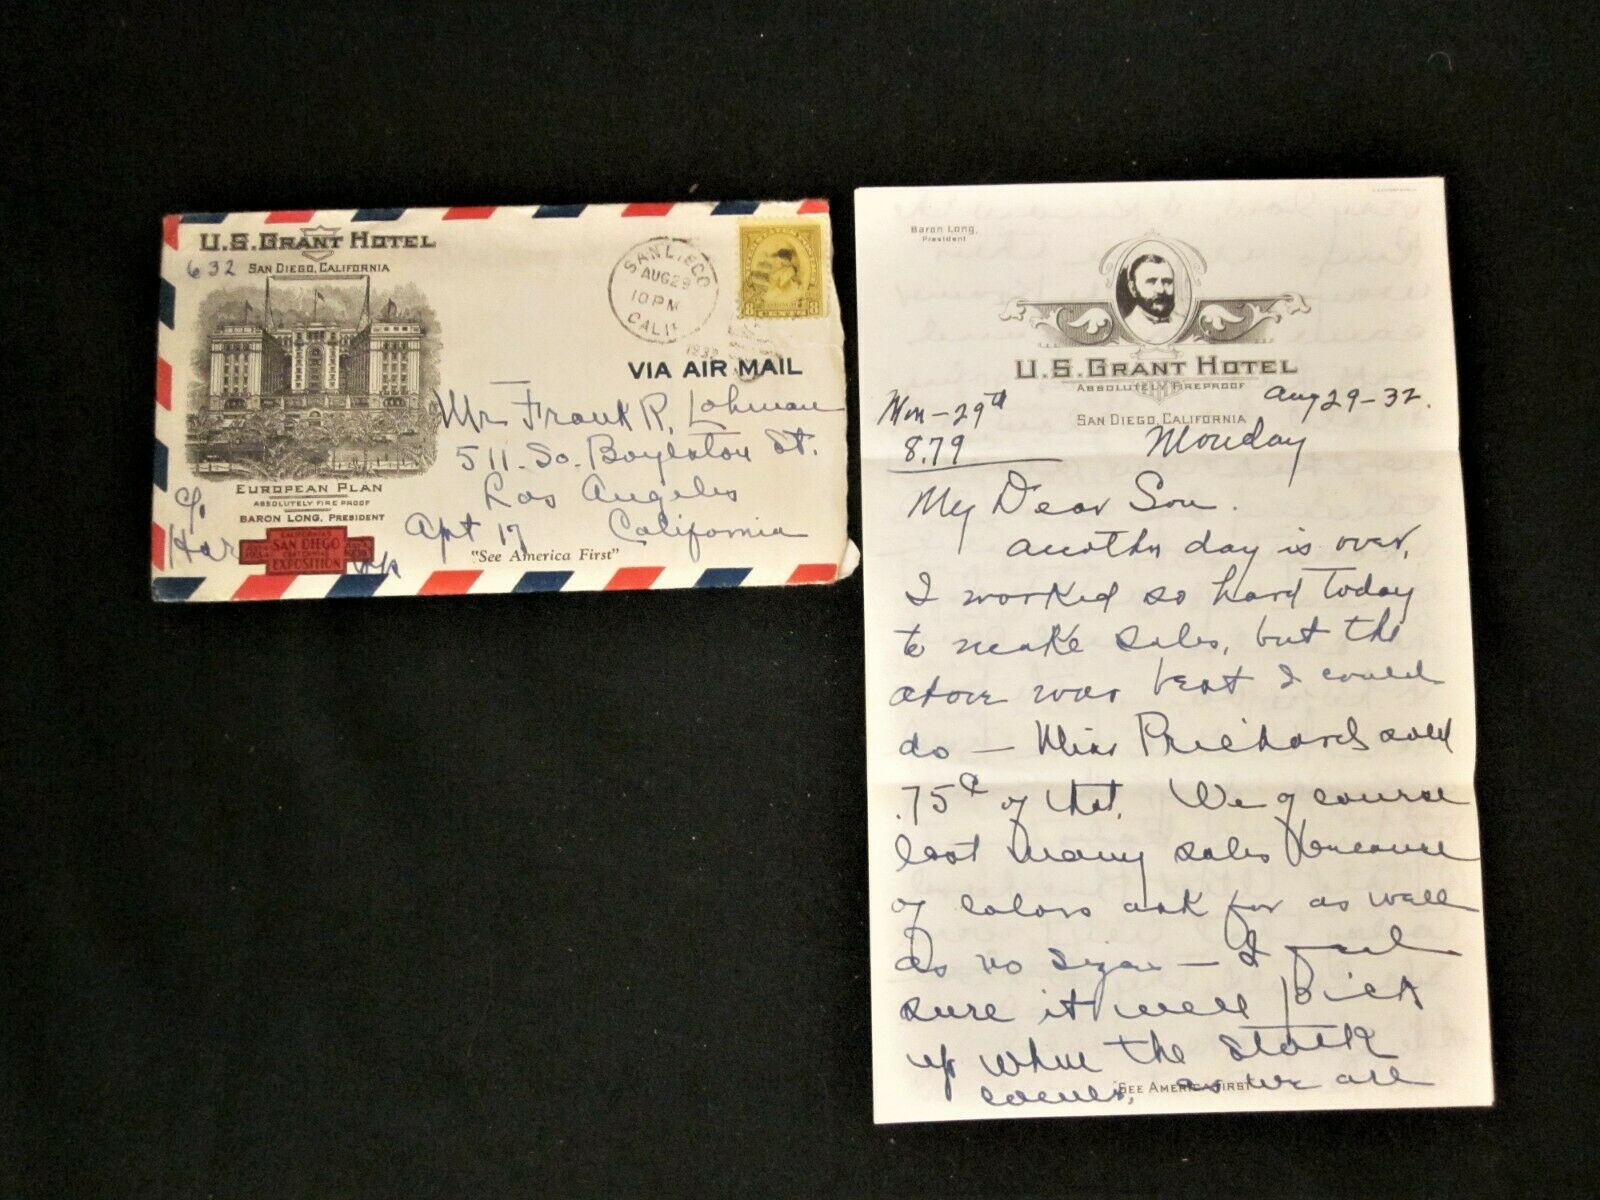 U.S. GRANT HOTEL
632
SAN DIEGO, CALIFORNIA
SAN DIEGO
AUG 29
10 PM
CALIF
1932
8 CENTS 8
VIA AIR MAIL
Mr Frank R. Lohman
511. So. Boylston St.
Los Angeles
Apt 17 California
EUROPEAN PLAN
ABSOLUTELY FIRE PROOF
BARON LONG, PRESIDENT
"See America First"
SAN DIEGO
EXPOSITION
Baron Long,
President
U.S. GRANT HOTEL
ABSOLUTELY FIREPROOF
SAN DIEGO, CALIFORNIA
Mon - 29th
Aug 29-32.
8.79
Monday
My Dear Son.
Another day is over,
I worked so hard today
to make sales, but the
above was best I could
do — Miss Prichard sold
.75¢ of that. We of course
lost many sales because
of colors ask for as well
as no sizes — I feel
sure it will pick
up when the stock
comes, as we are
SEE AMERICA FIRST